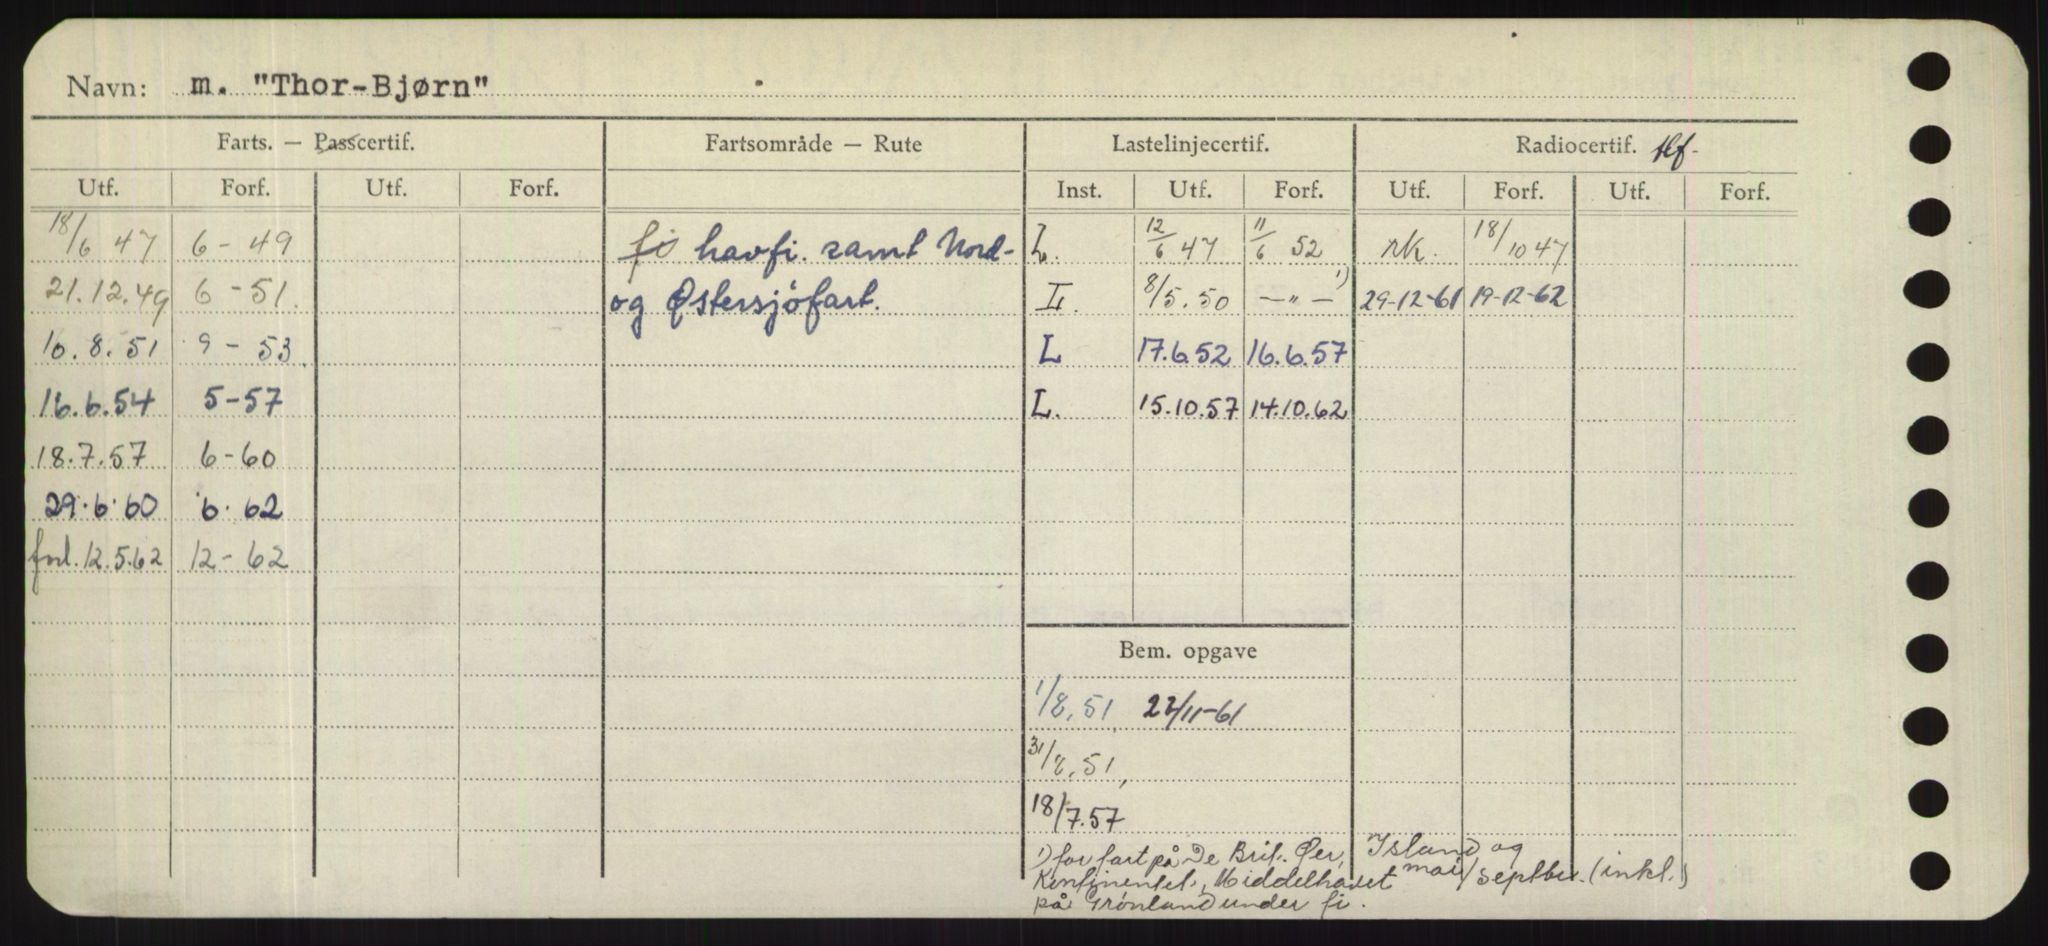 Navn: m. "Thor-Bjørn"
Farts. — Passcertif. Fartsområde — Rute Lastelinjecertif. Radiocertif. tlf.
Utf. Forf. Utf. Forf. Inst. Utf. Forf. Utf. Forf. Utf. Forf.
18/6 47 6 - 49 fi havfi. samt Nord- L. 12/6 47 11/6 52 rk. 18/10 47
21.12.49 6 - 51. og Østersjøfart. L. 8/5.50 — " — 1) 29-12-61 19-12-62
10.8.51 9 - 53 L 17.6.52 16.6.57
16.6.54 5-57 L. 15.10.57 14.10.62
18.7.57 6-60
29.6.60 6.62
forl. 12.5.62 12-62
Bem. opgave
1/8.51 22/11-61
31/8.51,
18/7.57
1) for fart på De Brit. Øer, Island og
Kontinentet, Middelhavet mai/septbr. (inkl.)
på Grønland under fi.